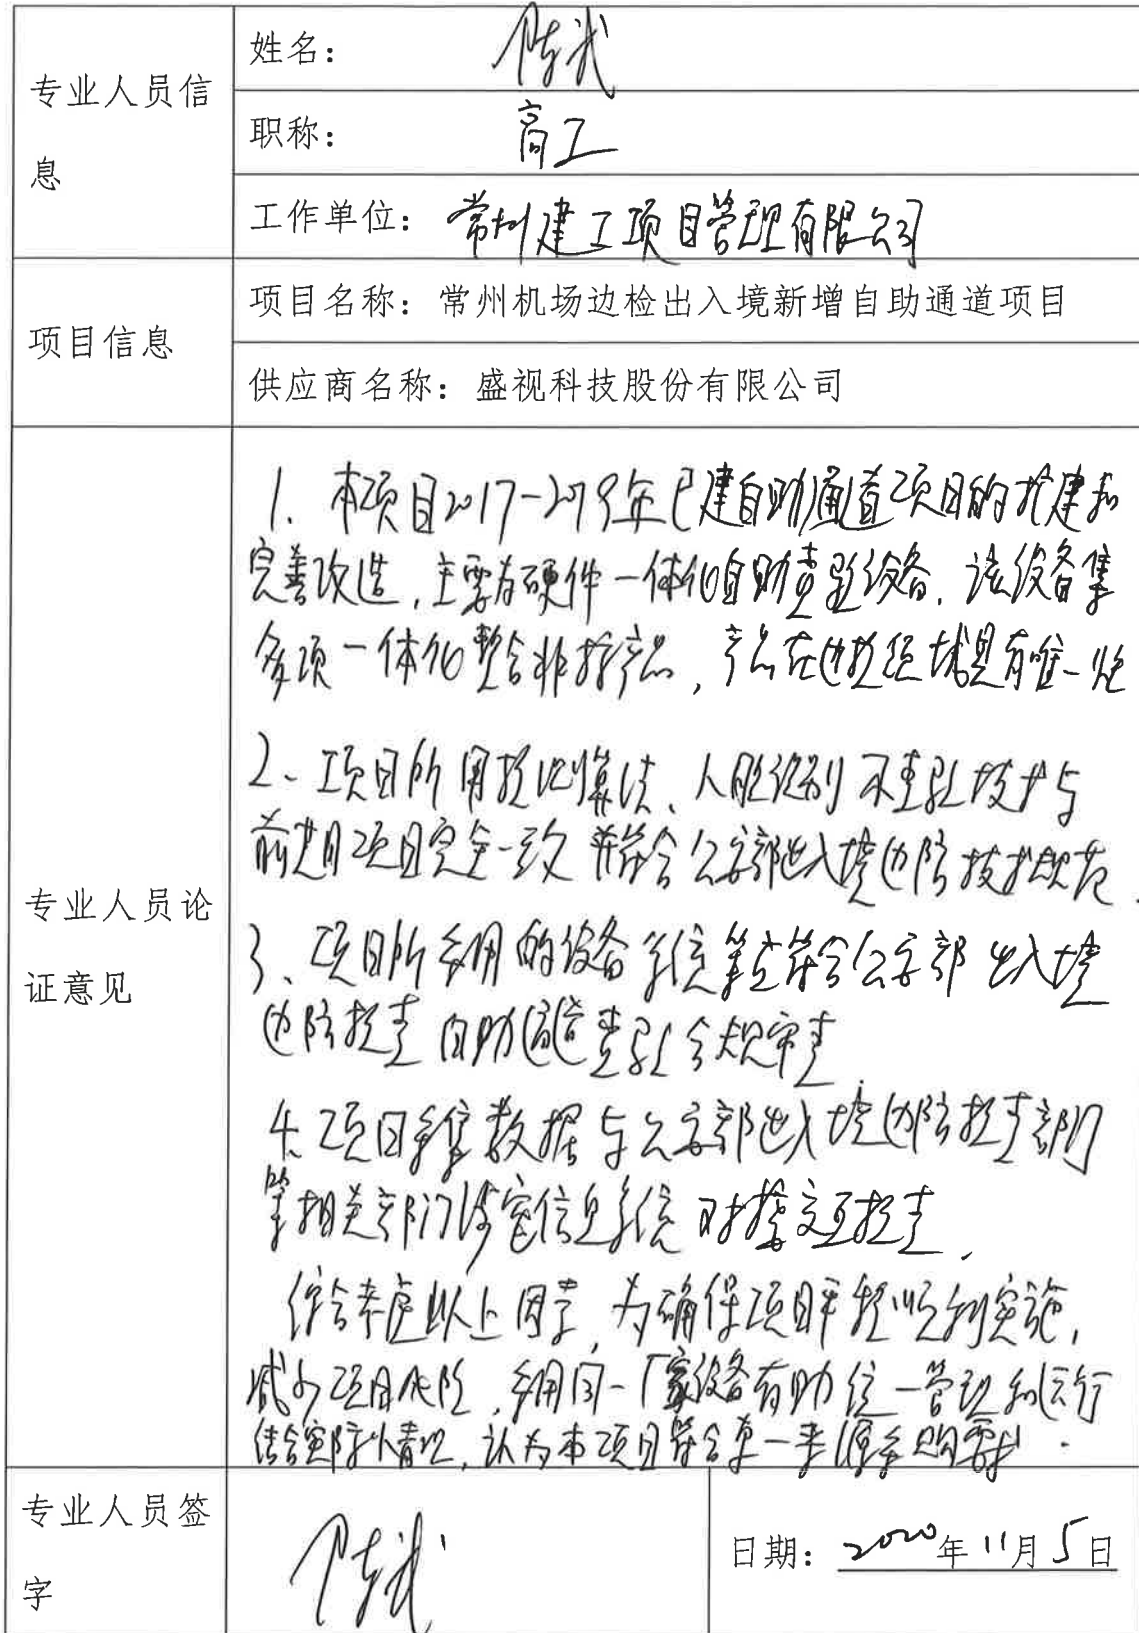 专业人员信
息
姓名：陈武
职称：高工
工作单位：常州建工项目管理有限公司
项目信息
项目名称：常州机场边检出入境新增自助通道项目
供应商名称：盛视科技股份有限公司
专业人员论
证意见
1、本项目2017-2019年已建自助通道项目的扩建和
完善改造，主要为硬件一体化自助查验设备，该设备集
多项一体化整合非标产品，产品在边检领域具有唯一性
2、项目所用核心算法、人脸识别和查验技术与
前期项目完全一致 并符合公安部出入境边防技术规范.
3、项目所采用的设备系统等应符合公安部出入境
边防检查自助通道查验合规审查
4、项目采集数据与公安部出入境边防检查部门
等相关部门涉密信息系统对接交互检查，
综合考虑以上因素，为确保项目 顺利实施，
减少项目风险，采用同一厂家设备有助统一管理和运行
结合实际情况，认为本项目符合单一来源采购要求.
专业人员签
字
陈武
日期：2020年11月5日